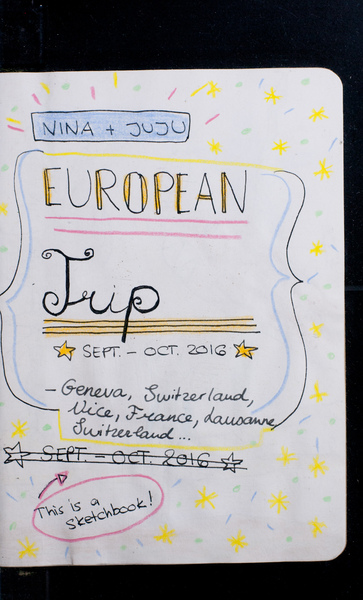 NINA + JUJU
EUROPEAN
Trip
SEPT. - OCT. 2016
- Geneva, Switzerland,
Nice, France, Lausanne,
Switzerland...
SEPT. - OCT. 2016
This is a
Sketchbook!